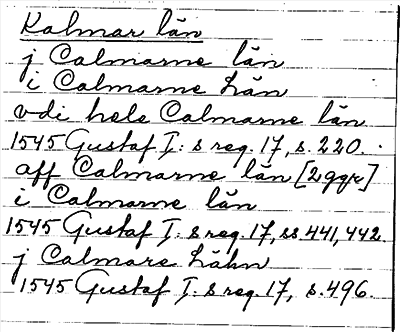 Kalmar län
j Calmarne län
i Calmarne Län
vdi hele Calmarne län
1545 Gustaf I: s reg. 17, s. 220.
aff Calmarne län [2 ggr]
i Calmarne län
1545 Gustaf I: s reg. 17, ss 441, 442.
j Calmare Lähn
1545 Gustaf I: s reg. 17, s. 496.